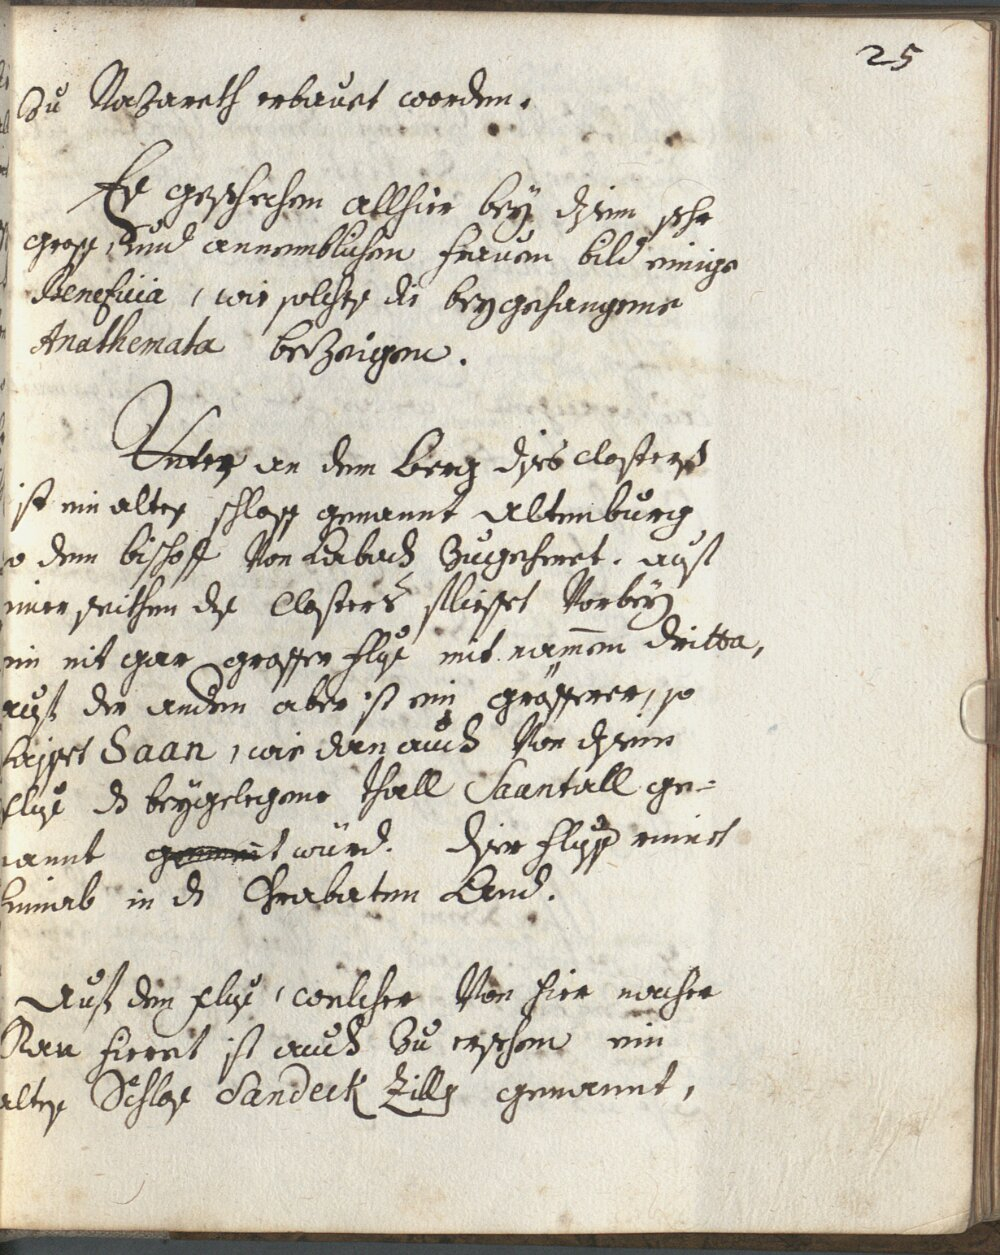 25
Zu Nazareth erbauet worden.
Es geschehen allhier bey disem sehr
gross, und annemblichen frauen bild einige
Beneficia, wie solches die beygehangene
Anathemata bezeigen.
Unter an dem Berg dises Closters
ist ein altes schloss genannt Altenburg
so dem bischoff Von Labach Zugehöret. auf
einer seithen des Closters fliesset Vorbey
ein nit gar grosser fluss mit nammen Dritta,
auf der andern aber ist ein grösserer, so
haisset Saan, wie dan auch Von disem
fluss dz beygelegene thall Saantall ge=
nannt würd. diser fluss rinnet
hinab in dz Chrabaten Land.
Auf dem fluss, welcher Von hier nacher
Ran fieret ist auch Zu ersehen ein
altes Schloss Sandeck Zilly genannt,